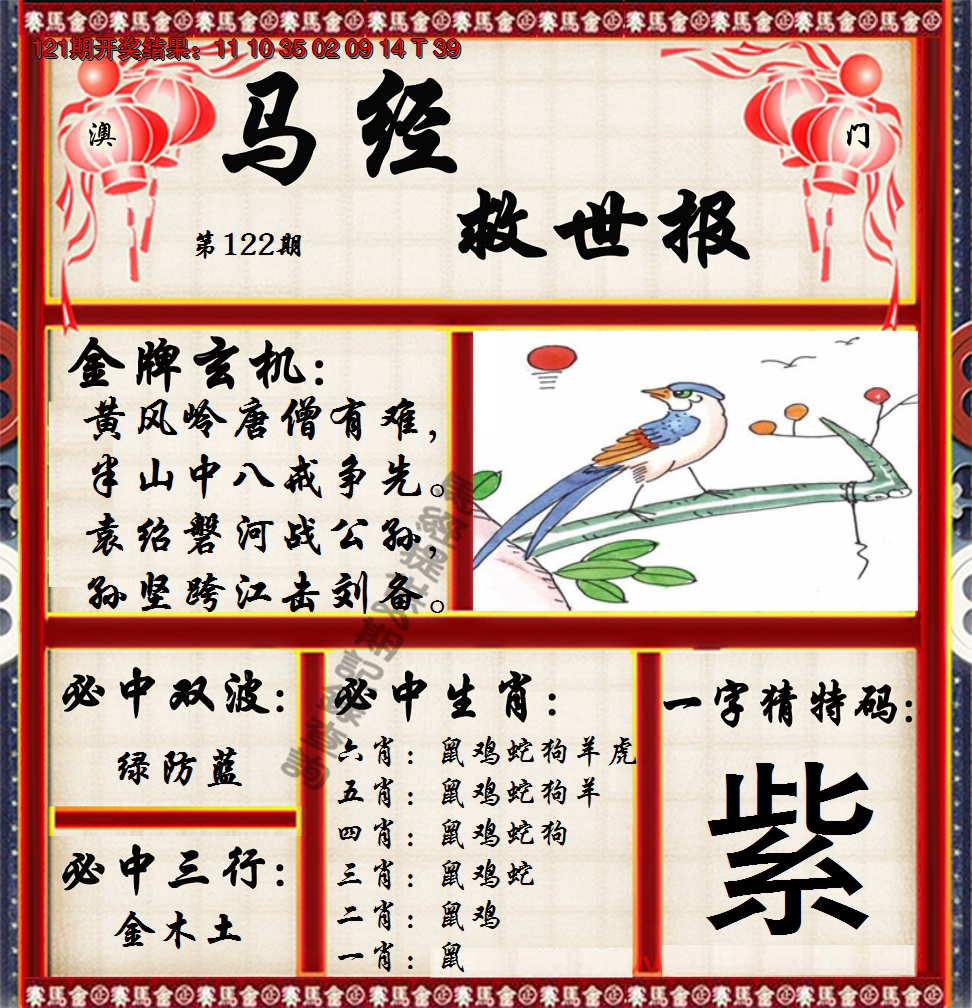 賽馬會
121期开奖结果：11 10 35 02 09 14 T 39
澳 门
马经
救世报
第122期
金牌玄机：
黄风岭唐僧有难，
半山中八戒争先。
袁绍磐河战公孙，
孙坚跨江击刘备。
必中双波：
绿防蓝
必中三行：
金木土
必中生肖：
六肖：鼠鸡蛇狗羊虎
五肖：鼠鸡蛇狗羊
四肖：鼠鸡蛇狗
三肖：鼠鸡蛇
二肖：鼠鸡
一肖：鼠
一字猜特码：
紫